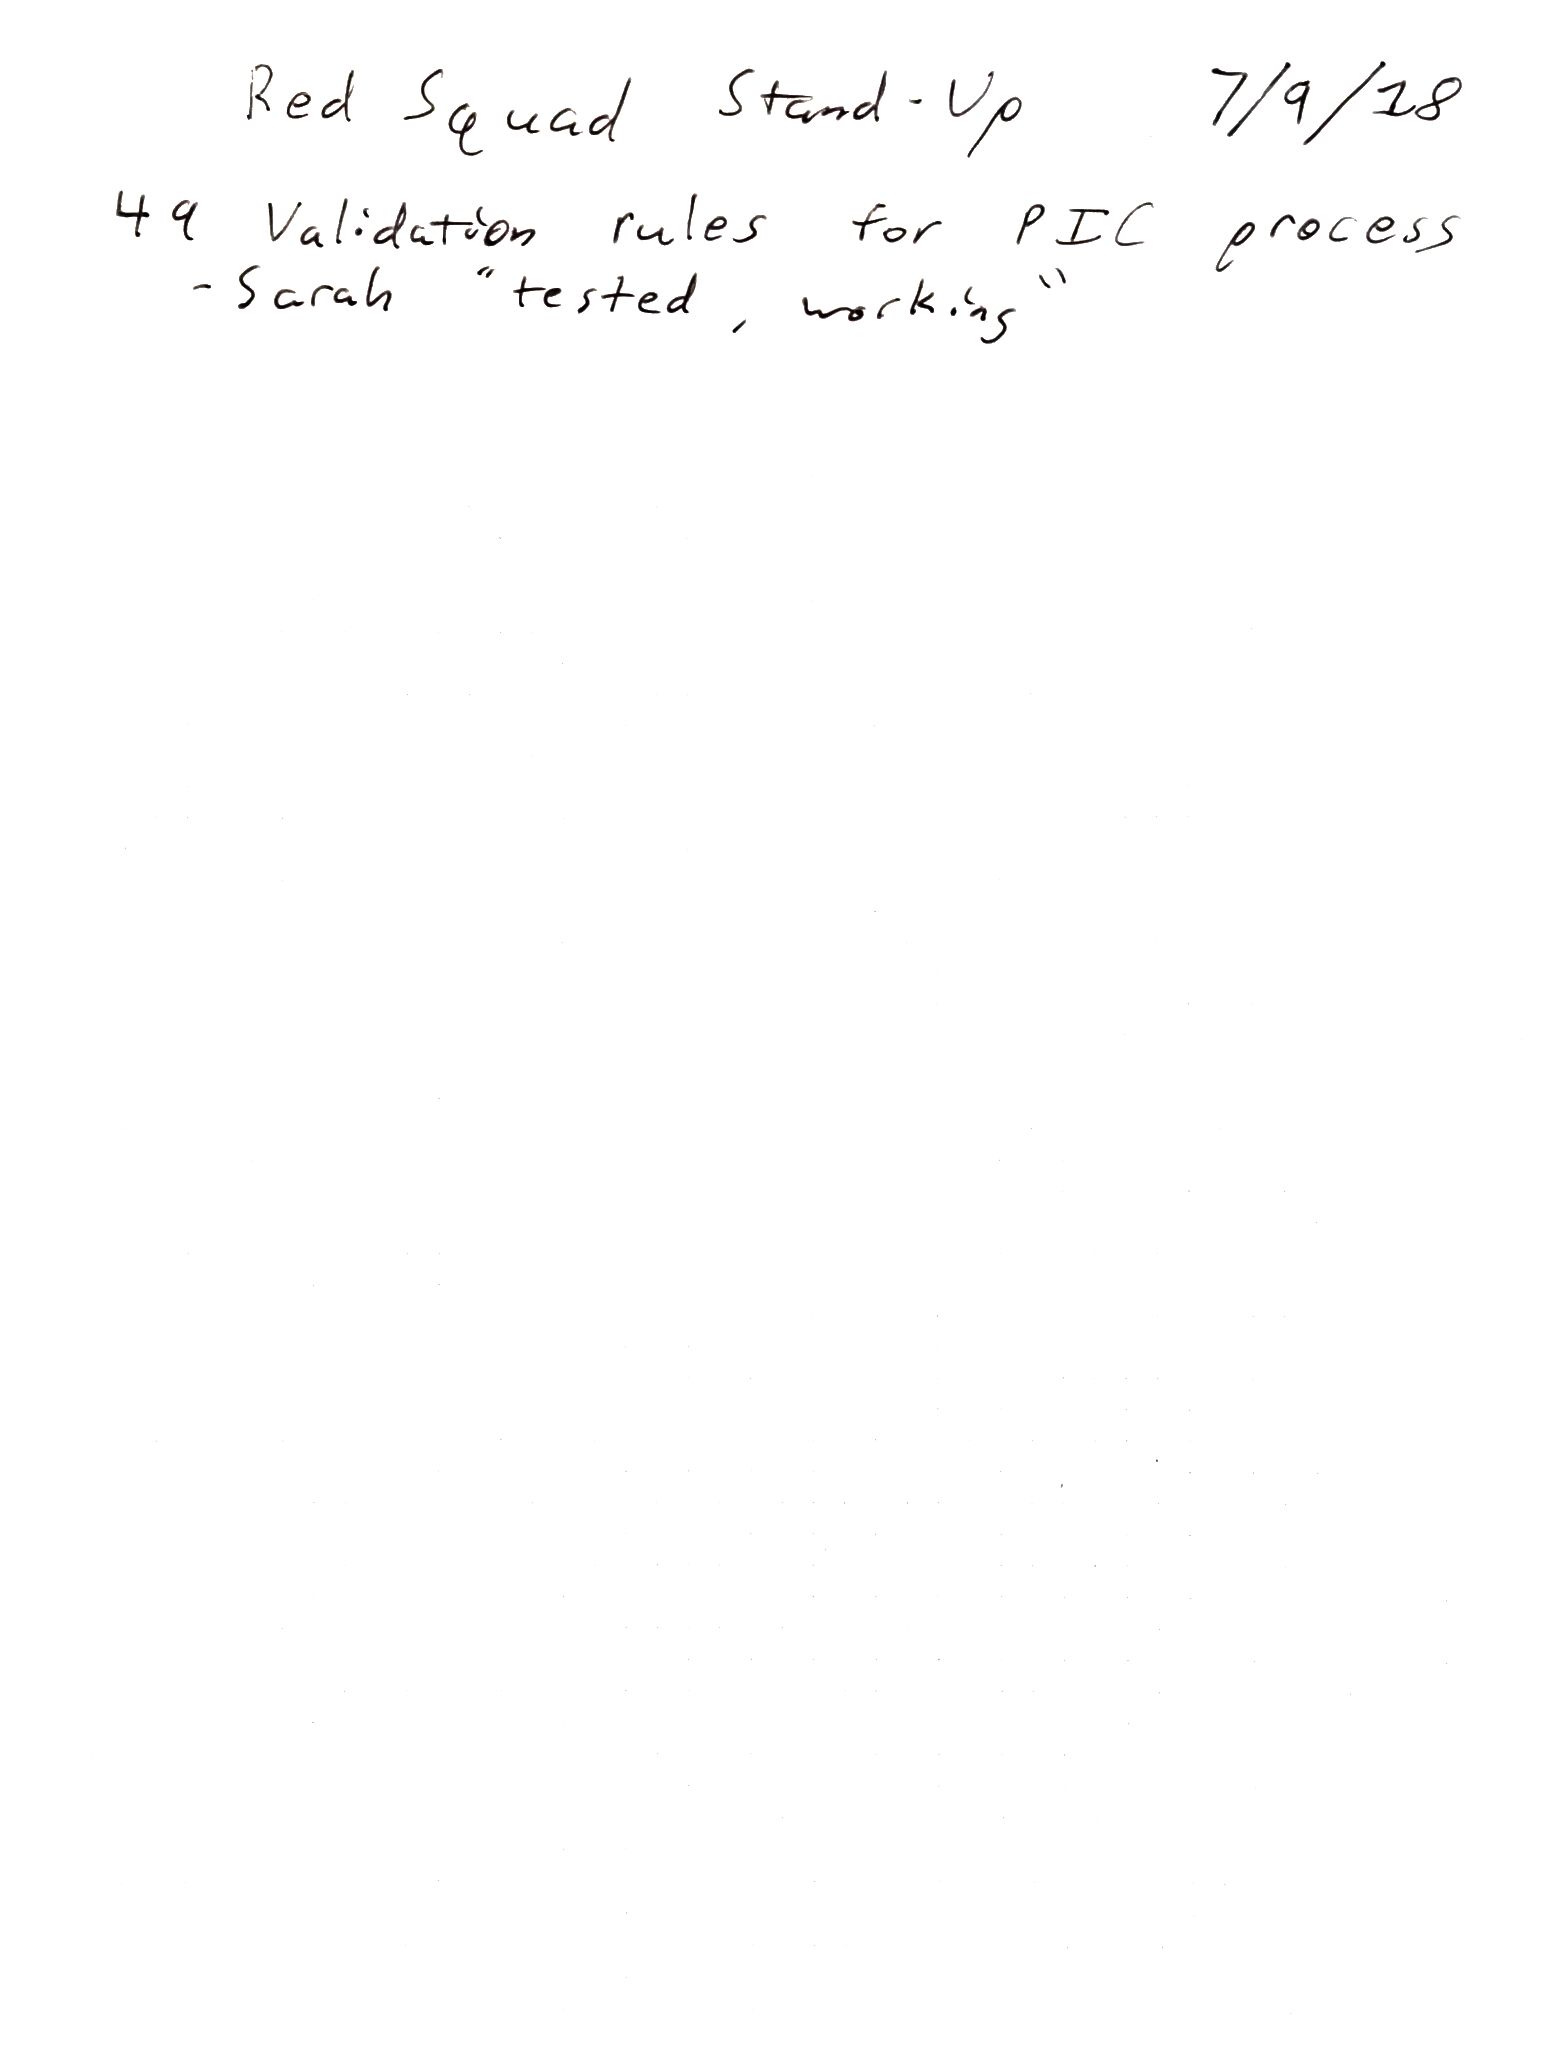 Red Squad Stand-Up 7/9/18
49 Validation rules for PIC process
- Sarah "tested, working"